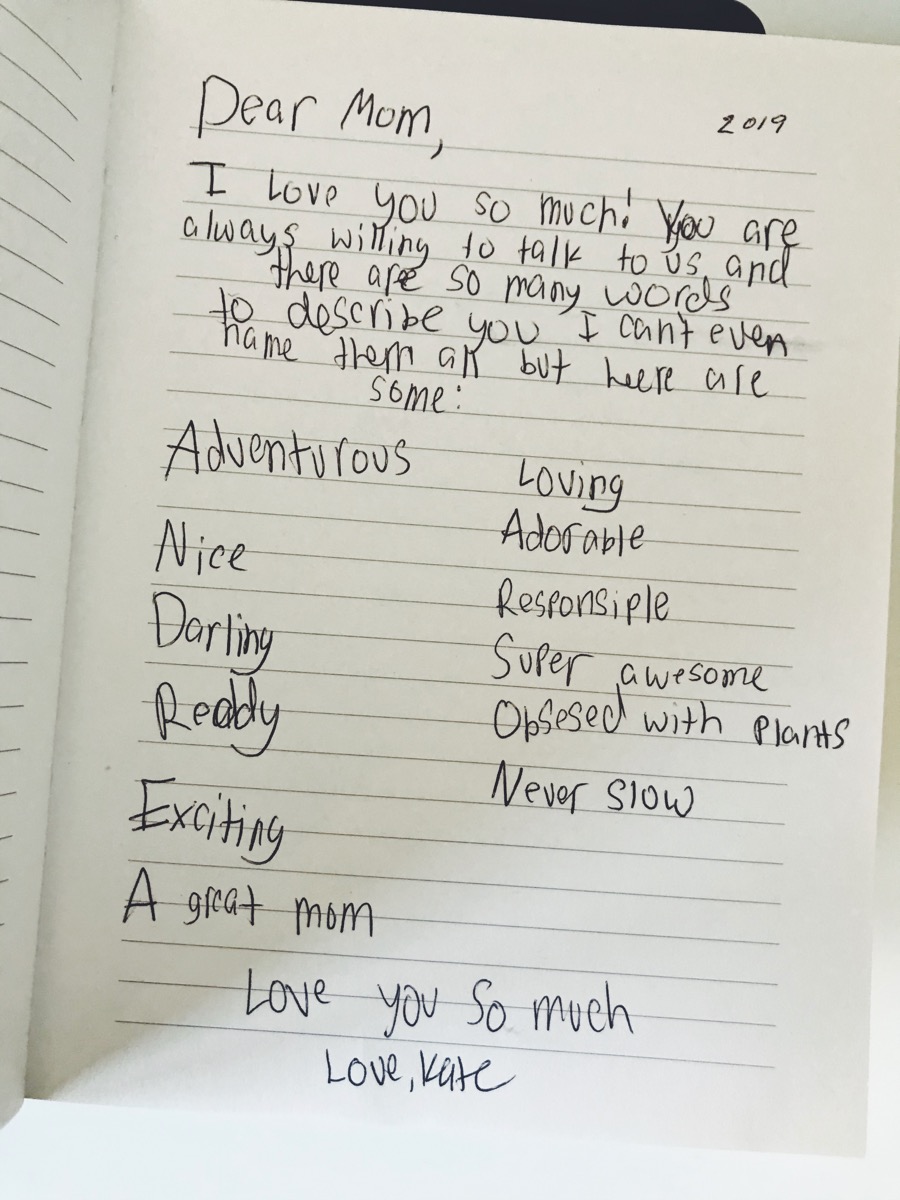 Dear Mom,
2019
I Love you so much! You are
always willing to talk to us, and
there are so many words
to describe you I can't even
name them all but here are
some:
Adventurous
Nice
Darling
Ready
Exciting
A great mom
Loving
Adorable
Responsiple
Super awesome
Obsesed with Plants
Never slow
Love you So much
Love, Kate